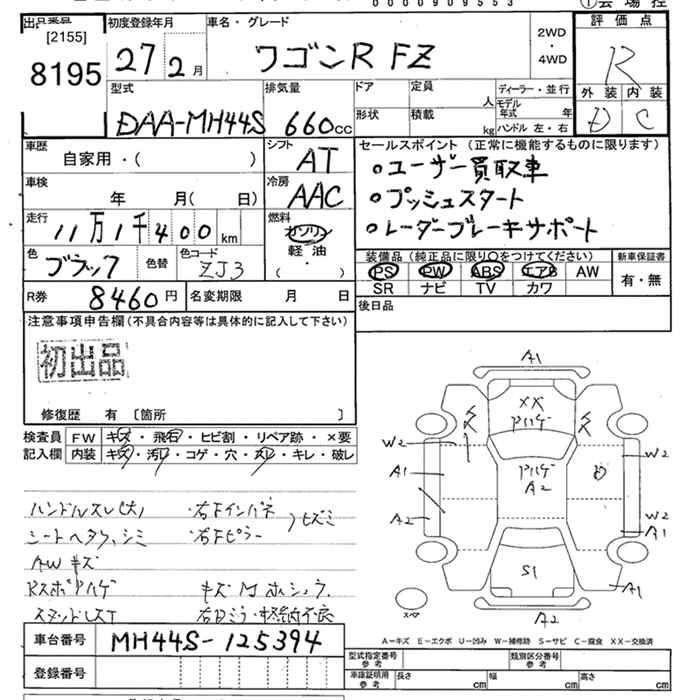 0000909553
①会場控
出品票番
[2155]
8195
初度登録年月
27 2月
車名・グレード
ワゴンR FZ
2WD
・
4WD
評価点
R
外装 内装
D C
型式
DAA-MH44S
排気量
660cc
ドア
形状
定員
人
積載
kg
ディーラー・並行
モデル
年式 年
ハンドル 左・右
車歴
自家用・( )
シフト
AT
セールスポイント (正常に機能するものに限ります)
○ユーザー買取車
○プッシュスタート
○レーダーブレーキサポート
車検
年 月( 日)
冷房
AAC
走行
11万1千400km
燃料
ガソリン
軽油
( ・ )
色
ブラック
色替
色コード
ZJ3
装備品 (純正品に限り○をつけてください)
PS PW ABS エアB AW
SR ナビ TV カワ
新車保証書
有・無
R券 8460円
名変期限 月 日
後日品
注意事項申告欄(不具合内容等は具体的に記入して下さい)
初出品
修復歴 有 〔箇所 〕
検査員
記入欄
FW キズ・飛石・ヒビ割・リペア跡・×要
内装 キズ・汚レ・コゲ・穴・スレ・キレ・破レ
ハンドルスレ(大) ・右Fインパネ
シートヘタリ、シミ ・右Fピラー
ヒズミ
AWキズ
A1
XX
W2
W2
A1
A2
A2
W2
A1
S1
A1
A2
スペア
A−キズ E−エクボ U−凹み W−補修跡 S−サビ C−腐食 XX−交換済
車台番号 MH44S-125394
登録番号
型式指定番号
参考
類別区分番号
参考
車庫証明用
参考
長さ cm
幅 cm
高さ cm